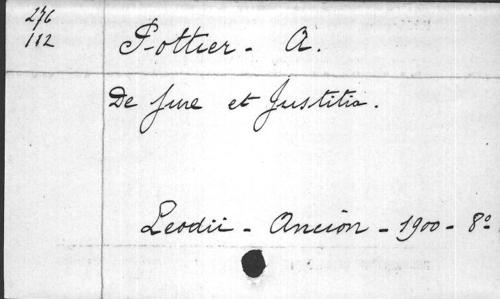 276
112
Pottier - A.
De Jure et Justitia.
Leodii - Ancion - 1900 - 8°